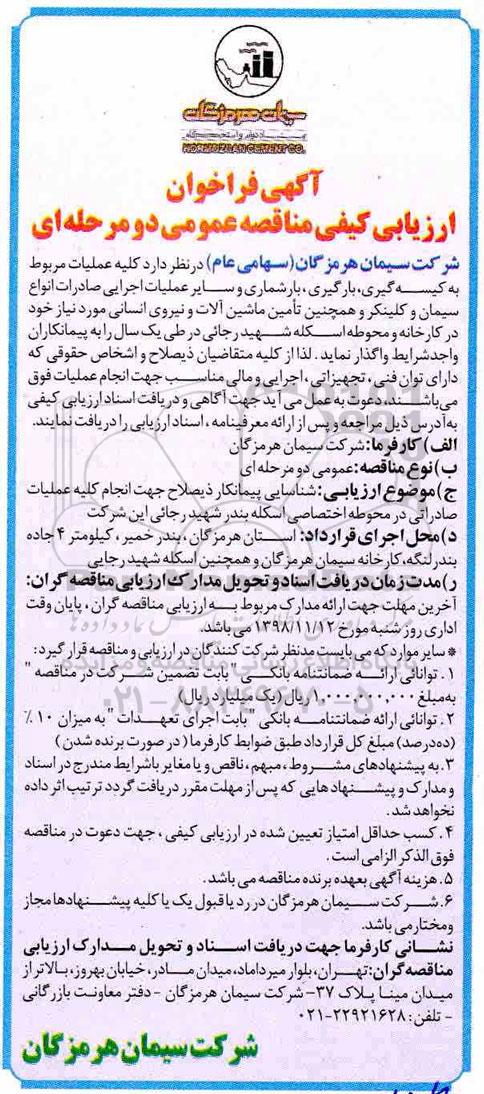 سیمان هرمزگان
HORMOZGAN CEMENT CO.
آگهی فراخوان
ارزیابی کیفی مناقصه عمومی دو مرحله ای
شرکت سیمان هرمزگان (سهامی عام) درنظر دارد کلیه عملیات مربوط
به کیسه گیری، بارگیری، بارشماری و سایر عملیات اجرایی صادرات انواع
سیمان و کلینکر و همچنین تأمین ماشین آلات و نیروی انسانی مورد نیاز خود
در کارخانه و محوطه اسکله شهید رجائی در طی یک سال را به پیمانکاران
واجد شرایط واگذار نماید. لذا از کلیه متقاضیان ذیصلاح و اشخاص حقوقی که
دارای توان فنی، تجهیزاتی، اجرایی و مالی مناسب جهت انجام عملیات فوق
می‌باشند، دعوت به عمل می آید جهت آگاهی و دریافت اسناد ارزیابی کیفی
به آدرس ذیل مراجعه و پس از ارائه معرفینامه، اسناد ارزیابی را دریافت نمایند.
الف) کارفرما: شرکت سیمان هرمزگان
ب) نوع مناقصه: عمومی دو مرحله ای
ج) موضوع ارزیابی: شناسایی پیمانکار ذیصلاح جهت انجام کلیه عملیات
صادراتی در محوطه اختصاصی اسکله بندر شهید رجائی این شرکت
د) محل اجرای قرارداد: استان هرمزگان، بندر خمیر، کیلومتر ۴ جاده
بندرلنگه، کارخانه سیمان هرمزگان و همچنین اسکله شهید رجایی
ر) مدت زمان دریافت اسناد و تحویل مدارک ارزیابی مناقصه گران:
آخرین مهلت جهت ارائه مدارک مربوط به ارزیابی مناقصه گران، پایان وقت
اداری روز شنبه مورخ ۱۳۹۸/۱۱/۱۲ می باشد.
* سایر مواردکه می بایست مدنظر شرکت کنندگان در ارزیابی و مناقصه قرار گیرد:
۱. توانائی ارائه ضمانتنامه بانکی "بابت تضمین شرکت در مناقصه"
به مبلغ ۱,۰۰۰,۰۰۰,۰۰۰ ریال (یک میلیارد ریال)
۲. توانائی ارائه ضمانتنامه بانکی "بابت اجرای تعهدات" به میزان ۱۰ ٪
(ده درصد) مبلغ کل قرارداد طبق ضوابط کارفرما (در صورت برنده شدن)
۳. به پیشنهادهای مشروط، مبهم، ناقص و یا مغایر باشرایط مندرج در اسناد
و مدارک و پیشنهادهایی که پس از مهلت مقرر دریافت گردد ترتیب اثر داده
نخواهد شد.
۴. کسب حداقل امتیاز تعیین شده در ارزیابی کیفی، جهت دعوت در مناقصه
فوق الذکر الزامی است.
۵. هزینه آگهی بعهده برنده مناقصه می باشد.
۶. شرکت سیمان هرمزگان در رد یا قبول یک یا کلیه پیشنهادها مجاز
و مختار می باشد.
نشانی کارفرما جهت دریافت اسناد و تحویل مدارک ارزیابی
مناقصه گران: تهران، بلوار میرداماد، میدان مادر، خیابان بهروز، بالاتر از
میدان مینا پلاک ۳۷- شرکت سیمان هرمزگان - دفتر معاونت بازرگانی
- تلفن: ۲۲۹۲۱۶۲۸-۰۲۱
شرکت سیمان هرمزگان